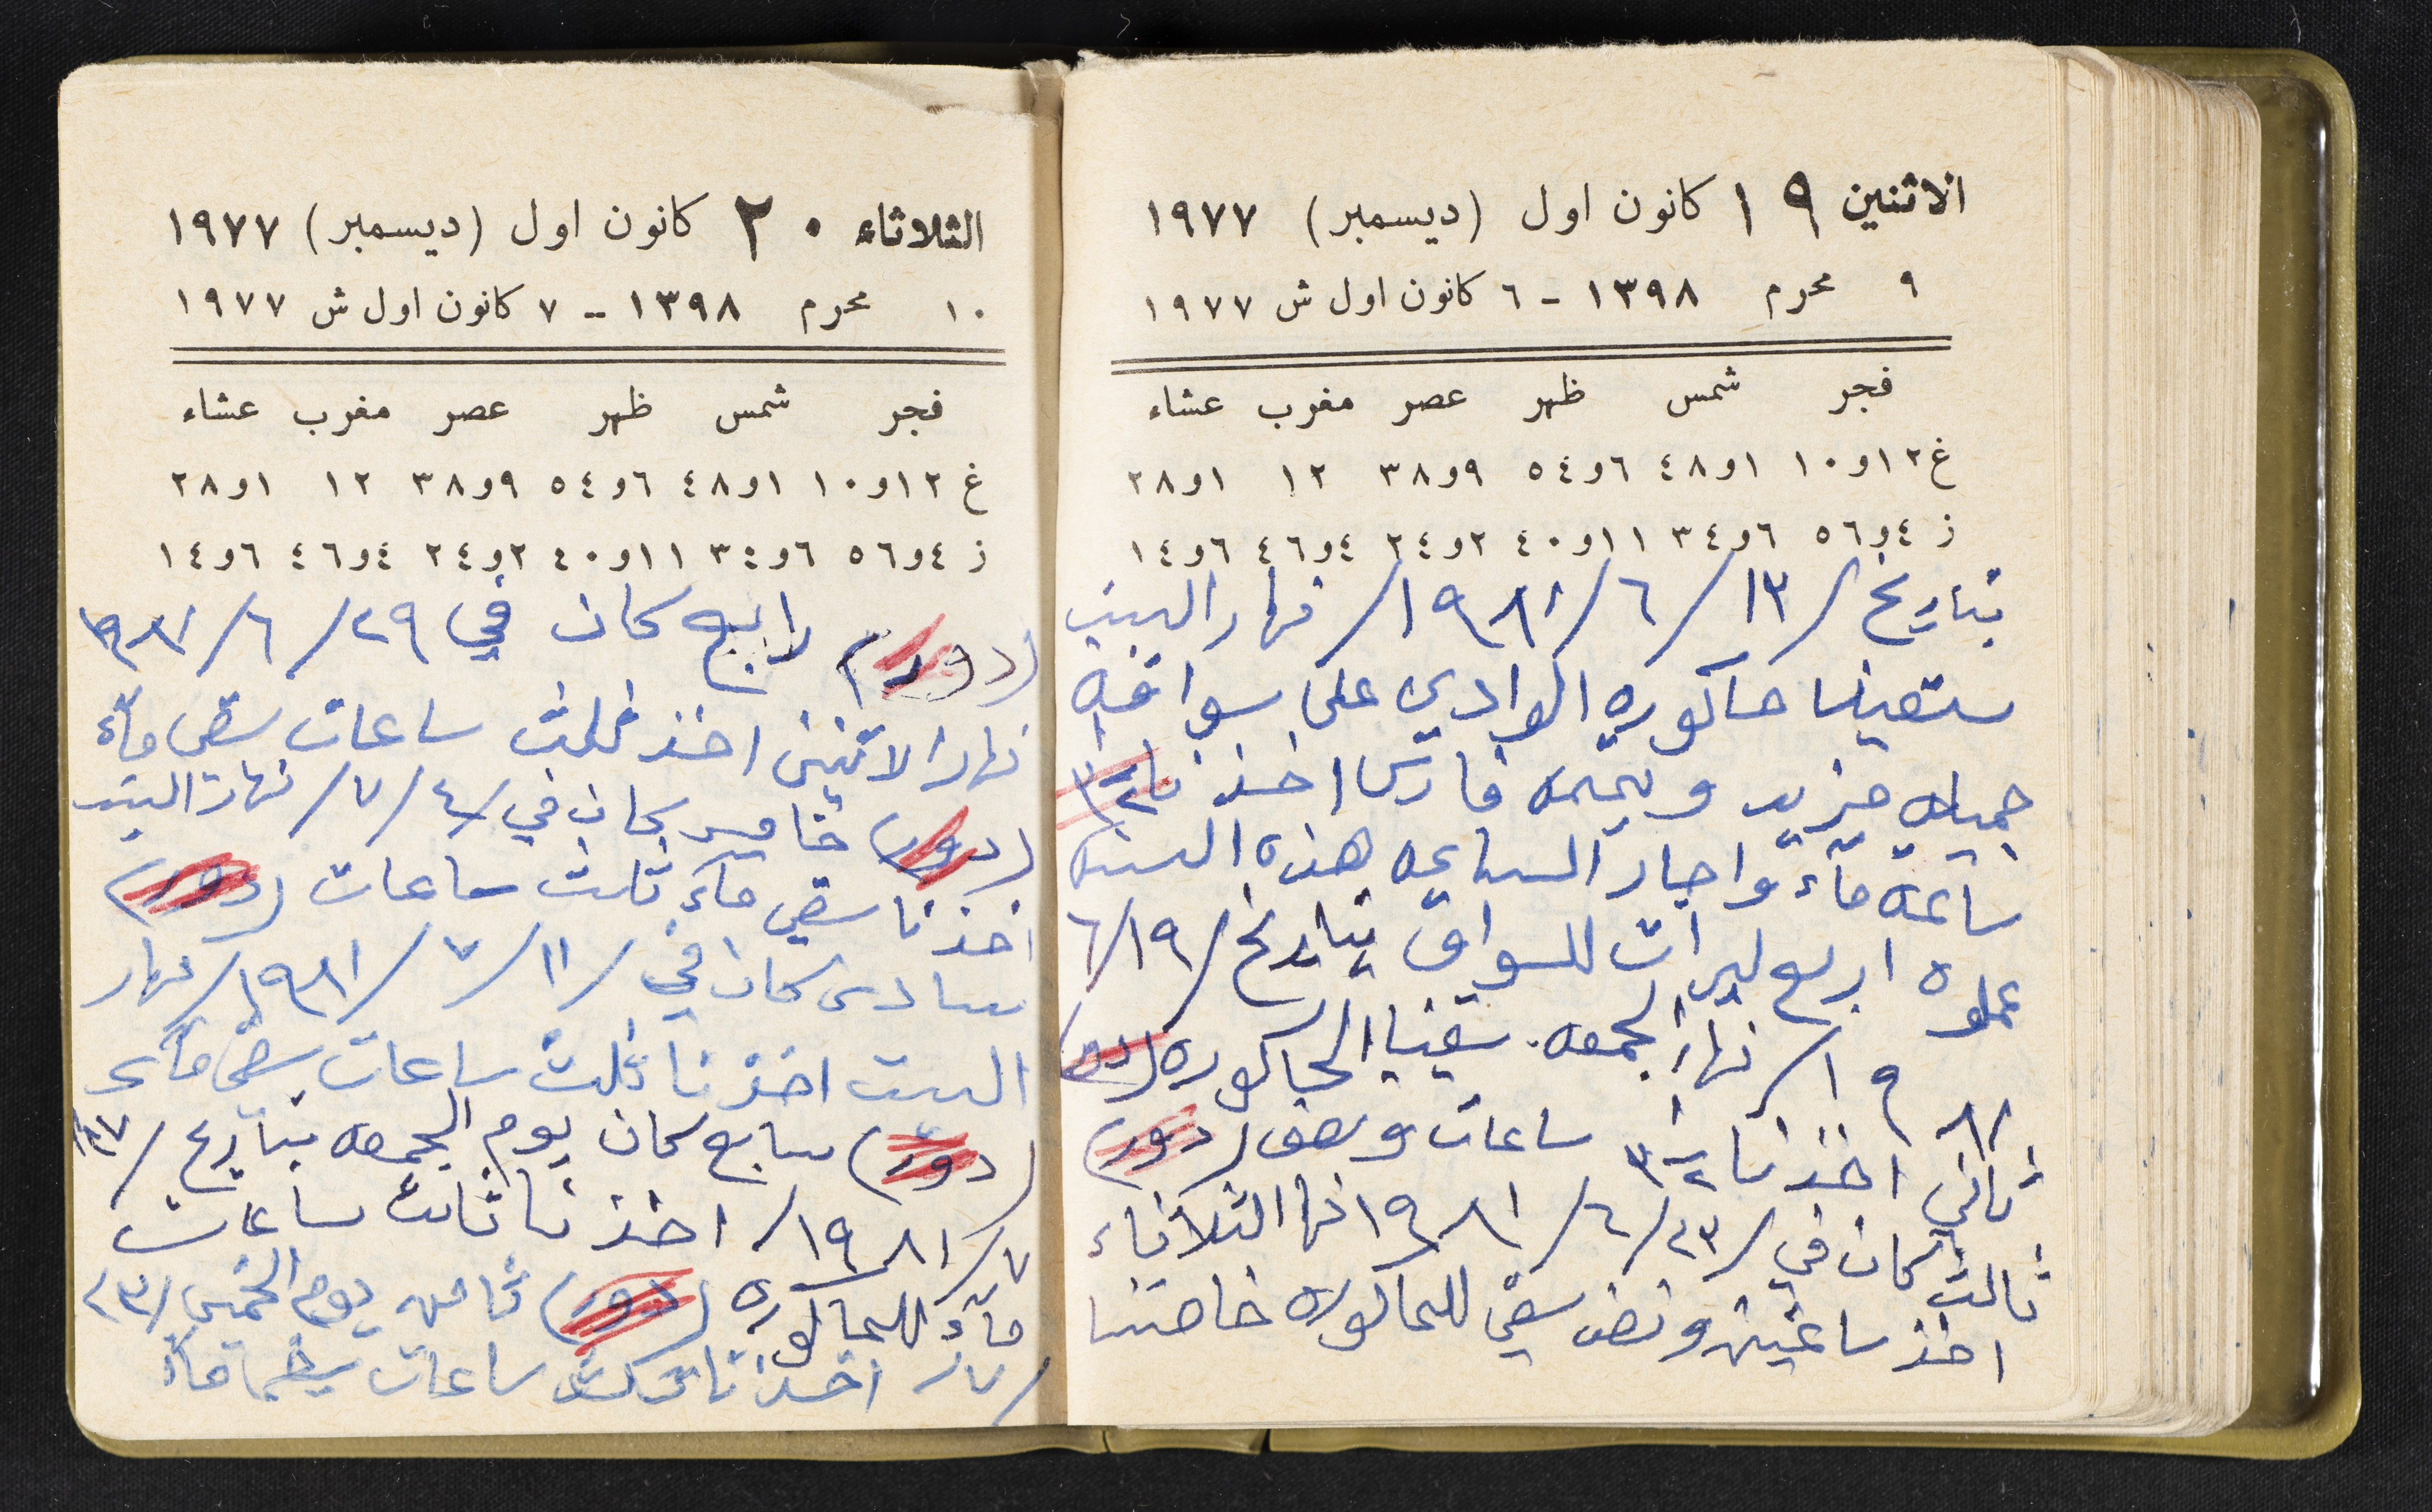 الاثنين ١٩ كانون اول (ديسمبر) ١٩٧٧
٩ محرم ١٣٩٨ - ٦ كانون اول ش ١٩٧٧
فجر شمس ظهر عصر مغرب عشاء
غ ١٢و١٠ ١و٤٨ ٦و٥٤ ٩و٣٨ ١٢ ١و٢٨
ز ٤و٥٦ ٦و٣٤ ١١و٤٠ ٢و٢٤ ٤و٤٦ ٦و١٤
بتاريخ /١٣/٦/١٩٨١/ نهار السبت
سقينا حاكوره الوادي على سواقه
جميله مزيد ويممه فارس اخذنا ٣١/٢
ساعة ماء واجار الساعه هذه السنه
عملوه اربع ليرات للسواق بتاريخ /٦/١٩
١٩٨١/ نهار الجمعه. سقينا الحاكوره (دور)
ثاني اخذنا ٣١/٢ ساعات ونصف (دور)
ثالث كان في /٢٣/٦/١٩٨١ نها الثلاثاء
اخذ ساعتين ونصف سقي للحاكوره خاصتنا
الثلاثاء ٢٠ كانون اول (ديسمبر) ١٩٧٧
١٠ محرم ١٣٩٨ -- ٧ كانون اول ش ١٩٧٧
فجر شمس ظهر عصر مغرب عشاء
غ ١٢و١٠ ١و٤٨ ٦و٥٤ ٩و٣٨ ١٢ ١و٢٨
ز ٤و٥٦ ٦و٣٤ ١١و٤٠ ٢و٢٤ ٤و٤٦ ٦و١٤
(دور) رابع كان في ٢٩/٦/١٩٨١
نهار الاثنين اخذ ثلث ساعات سقي ماء
(دور) خامس كان في /٤/٧/ نهار السبت
اخذنا سقي ماء ثلث ساعات (دور)
سادس كان في /١١/٧/١٩٨١/ نهار
السبت اخذنا ثلث ساعات سقي ماء
(دور) سابع كان يوم الجمعه بتاريخ /١٧
/٧/١٩٨١/ اخذنا ثلث ساعات
ماء للحاكوره (دور) ثامن يوم الخميس /٢٣
/٧/ اخذنا ثلث ساعات ماء